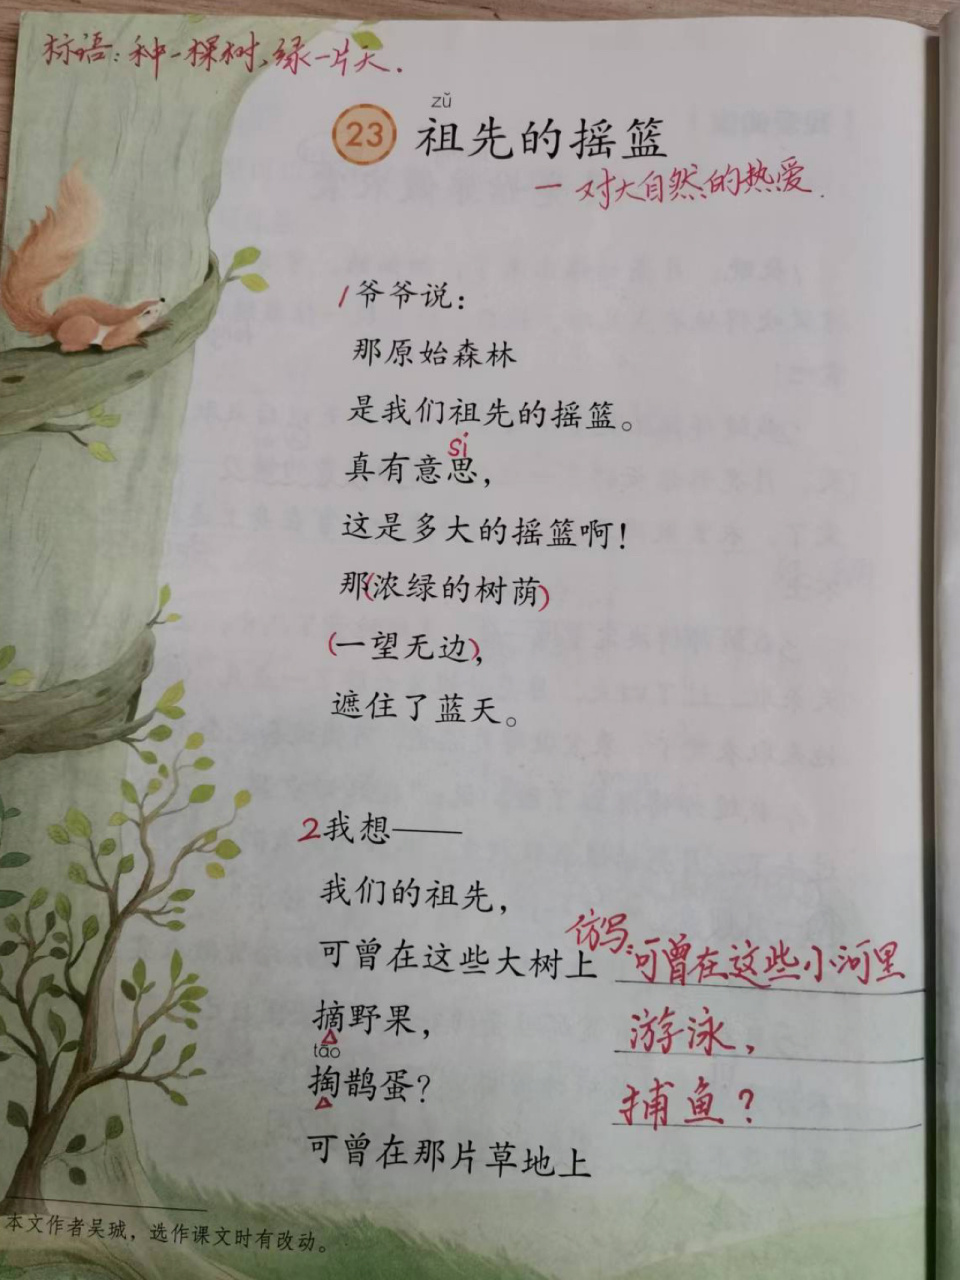 标语：种一棵树，绿一片天．
zǔ
23 祖先的摇篮
一对大自然的热爱．
1 爷爷说：
那原始森林
是我们祖先的摇篮。
si
真有意思，
这是多大的摇篮啊！
那(浓绿的树荫)
(一望无边)，
遮住了蓝天。
2 我想——
我们的祖先，
可曾在这些大树上
仿写：可曾在这些小河里
摘野果，
游泳，
tāo
掏鹊蛋？
捕鱼？
可曾在那片草地上
本文作者吴珹，选作课文时有改动。